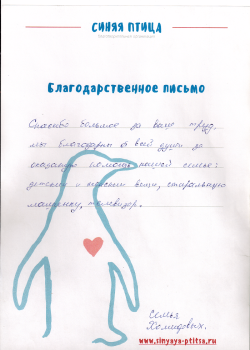 СИНЯЯ ПТИЦА
Благодарственное письмо
Спасибо большое за ваш труд,
мы благодарим от всей души за
оказанную помощь нашей семье:
детские и женские вещи, стиральную
машинку, телевизор.
Семья
Хомидовых.
www.sinyaya-ptitsa.ru